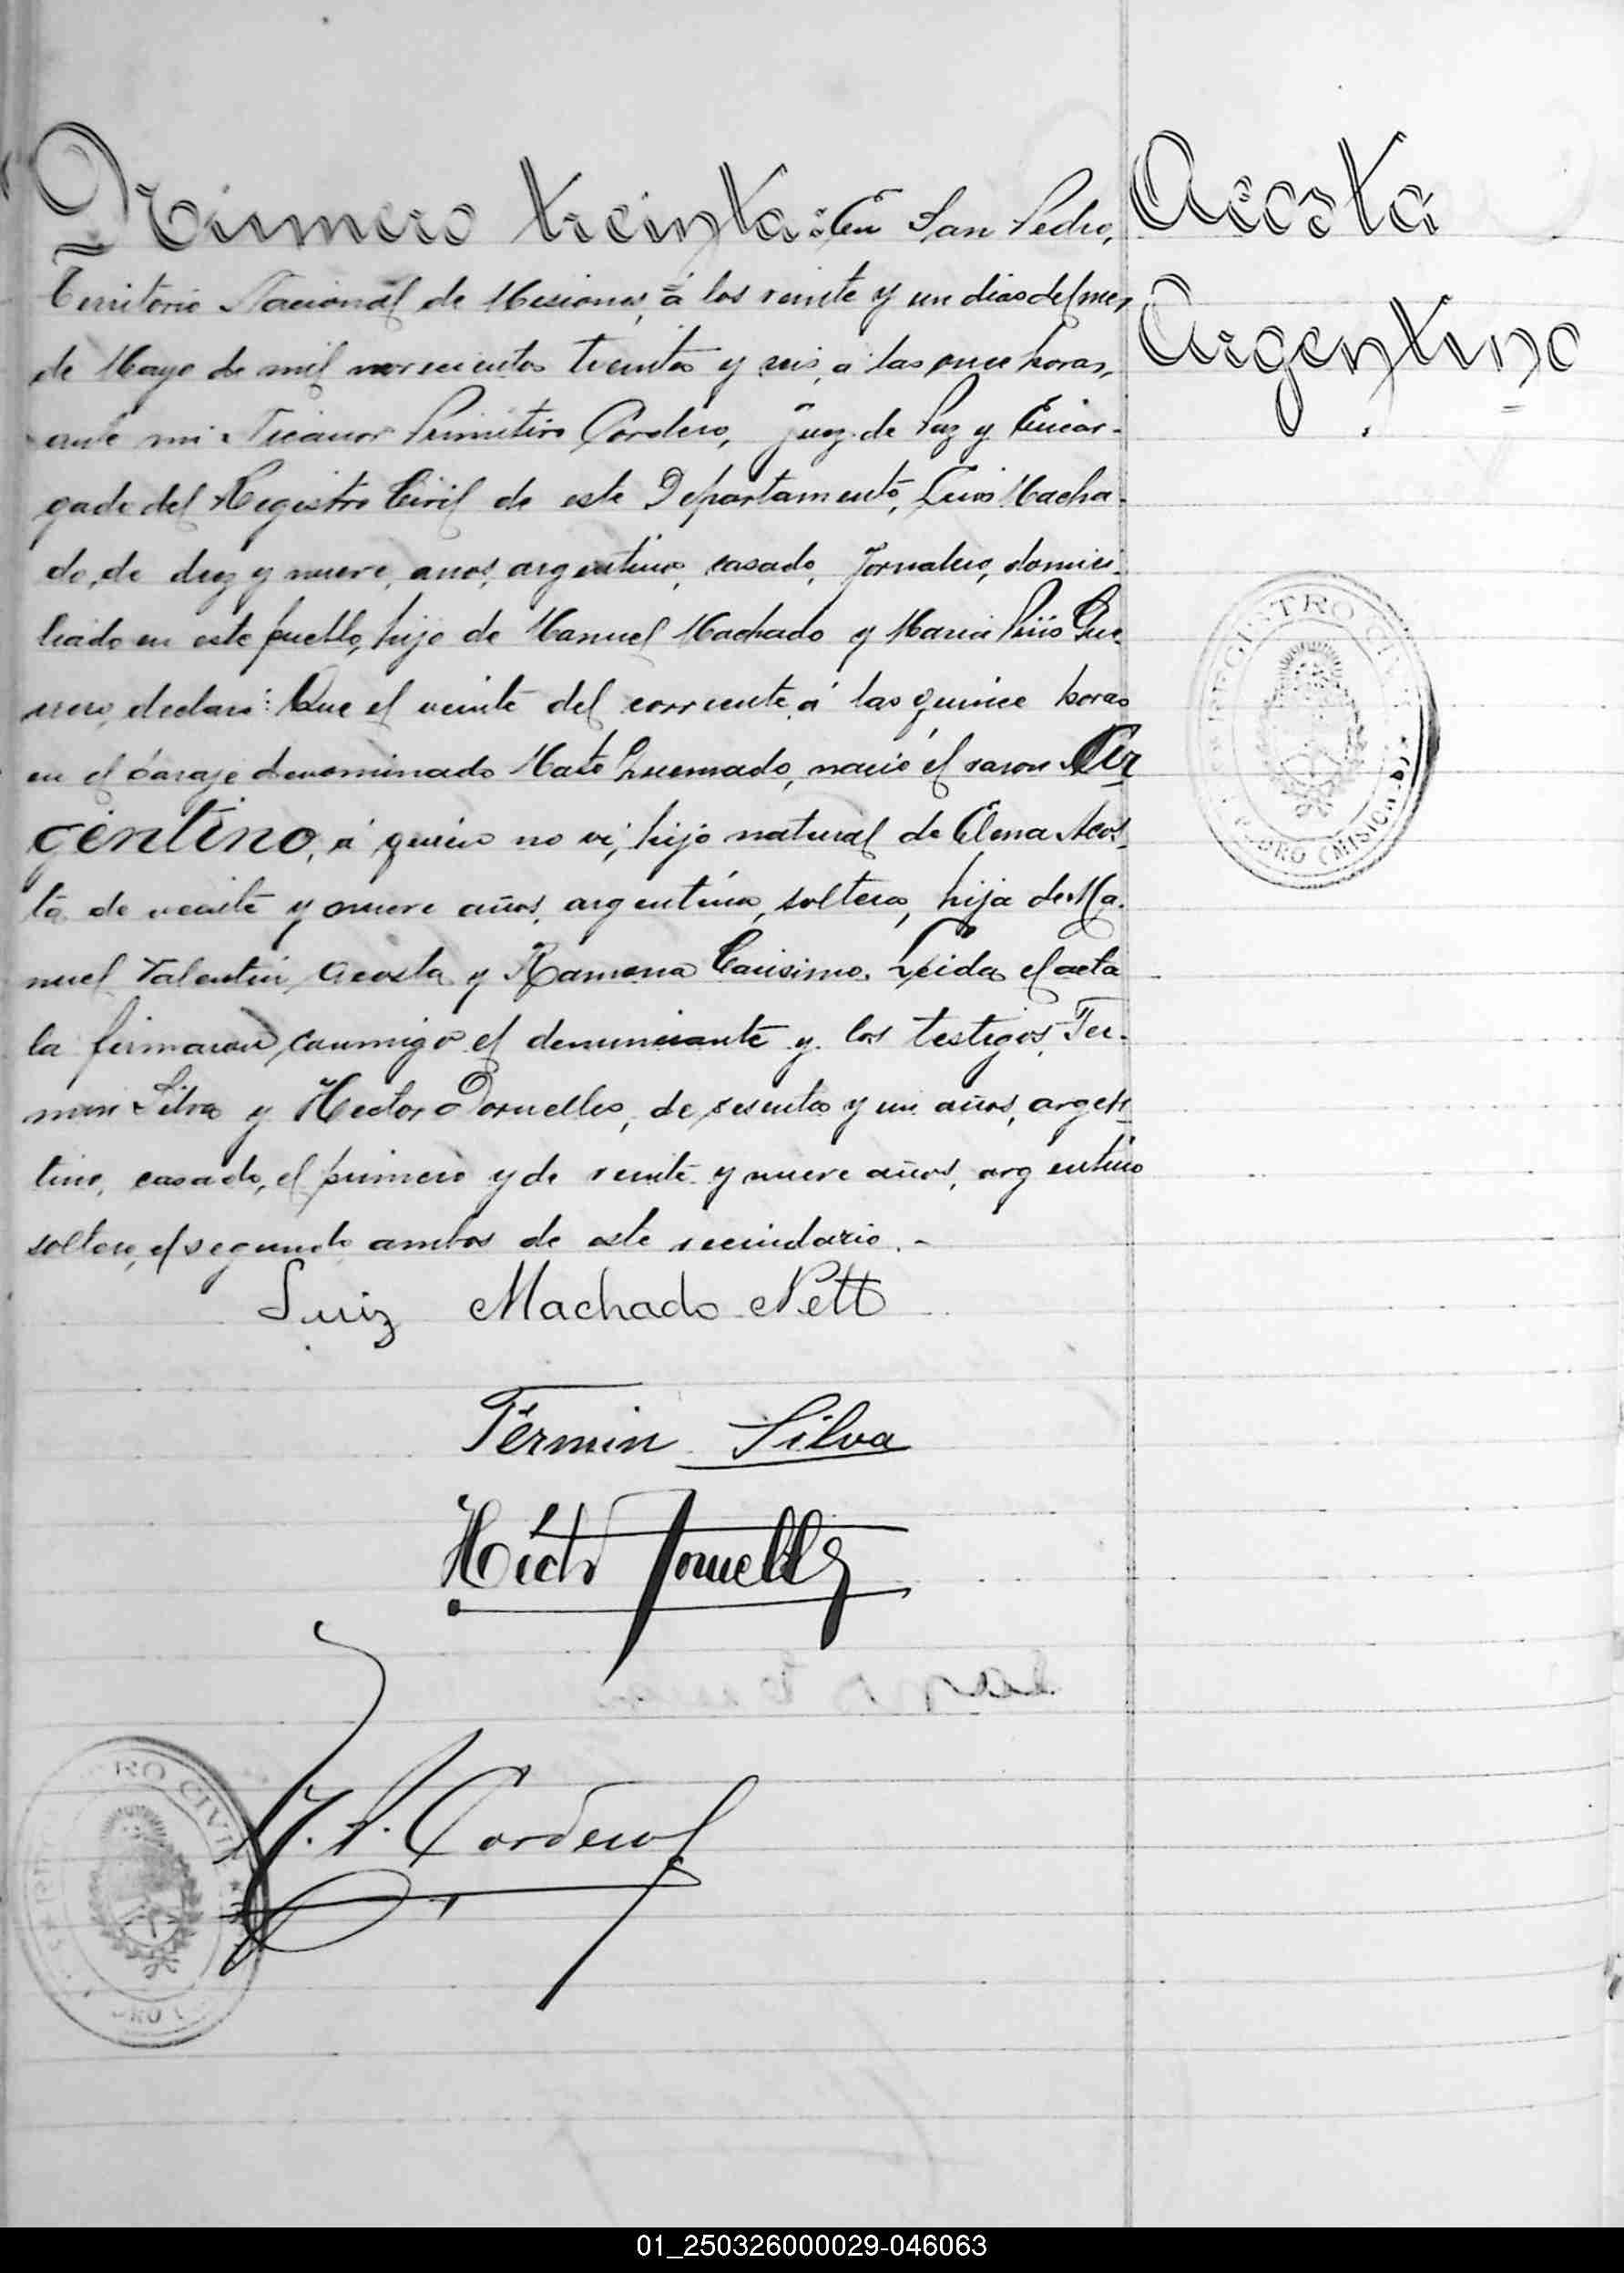 Número treinta: En San Pedro,
Territorio Nacional de Misiones, á los veinte y un dias del mes
de Mayo de mil novecientos treinta y seis, a las once horas,
ante mi Nicanor Primitivo Cordero, Juez de Paz y Encar-
gado del Registro Civil de este Departamento, Luis Macha-
do, de diez y nueve, anos, argentino, casado, Jornalero, domici-
liado en este pueblo, hijo de Manuel Machado y Maria Gue-
rrero, declaro: Que el veinte del corriente á las quince horas
en el paraje denominado Mato Quemado, nació el varon Ar-
gentino, á quien no vi, hijo natural de Elena Acos-
ta de veinte y nueve años, argentina, soltera, hija de Ma-
nuel Valentin Acosta y Ramona Carisimo. Leida el acta
la firmaron conmigo el denunciante y los testigos, Fer-
min Silva y Hector Dornelles, de sesenta y un años, argen-
tino, casado, el primero y de veinte y nueve años, argentino
soltero, el segundo ambos de este vecindario.-
Luiz Machado Nett
Fermin Silva
Héctor Dornelles
N. P. Cordero
Acosta
Argentino
REGISTRO CIVIL
RO CIVIL
01_250326000029-046063